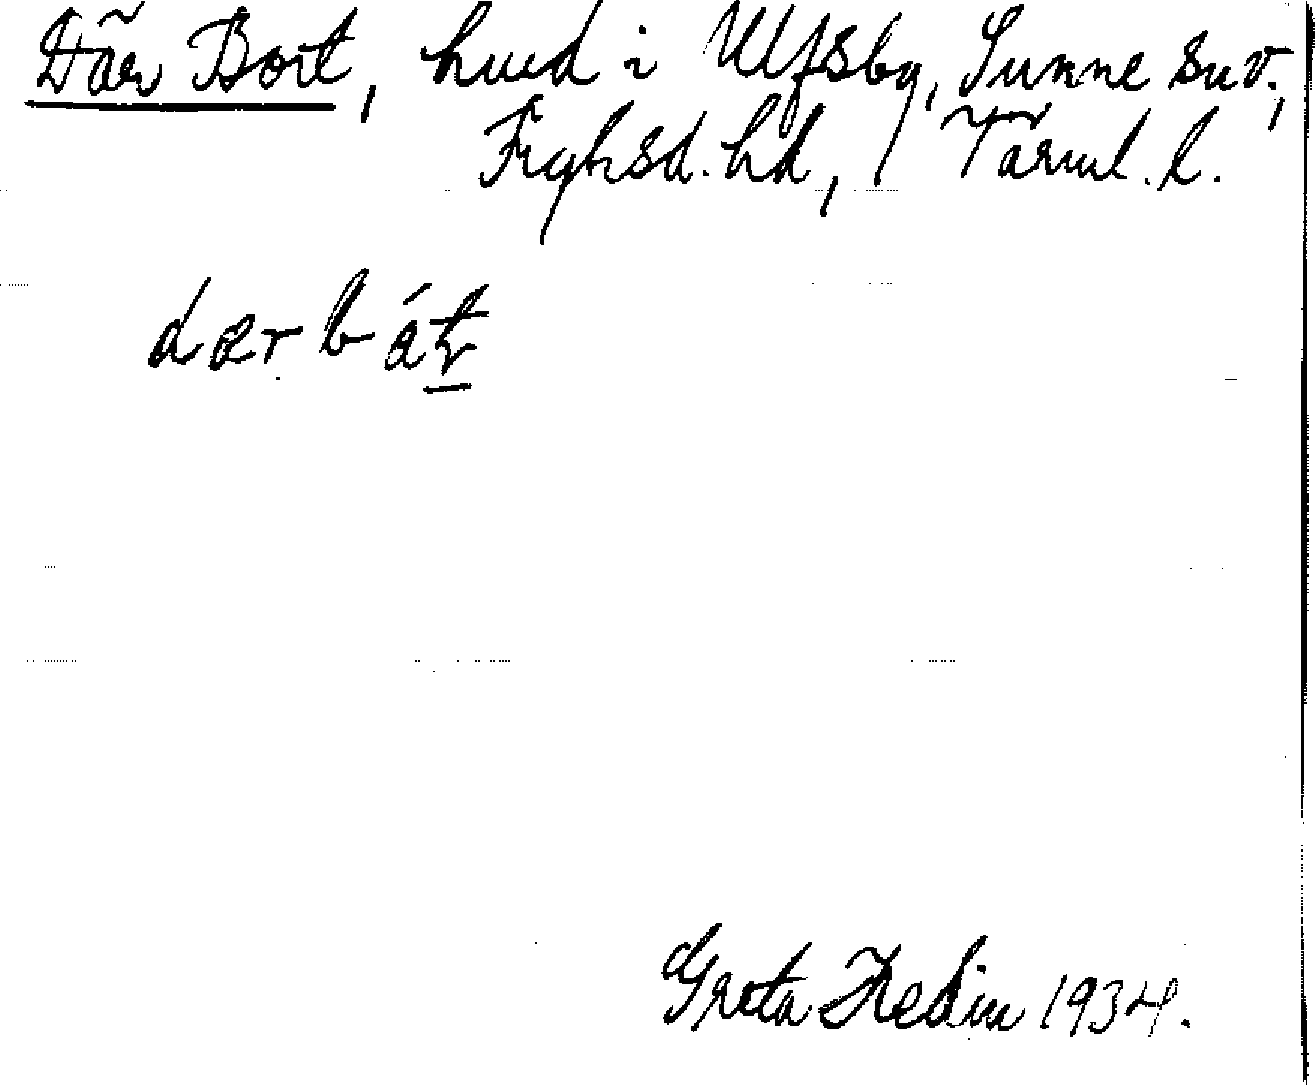 Där Bort, hmd i Ulfsby, Sunne sn v.,
Fryksd. hd, Värml. l.
dær b át
Greta Hedin 1934.